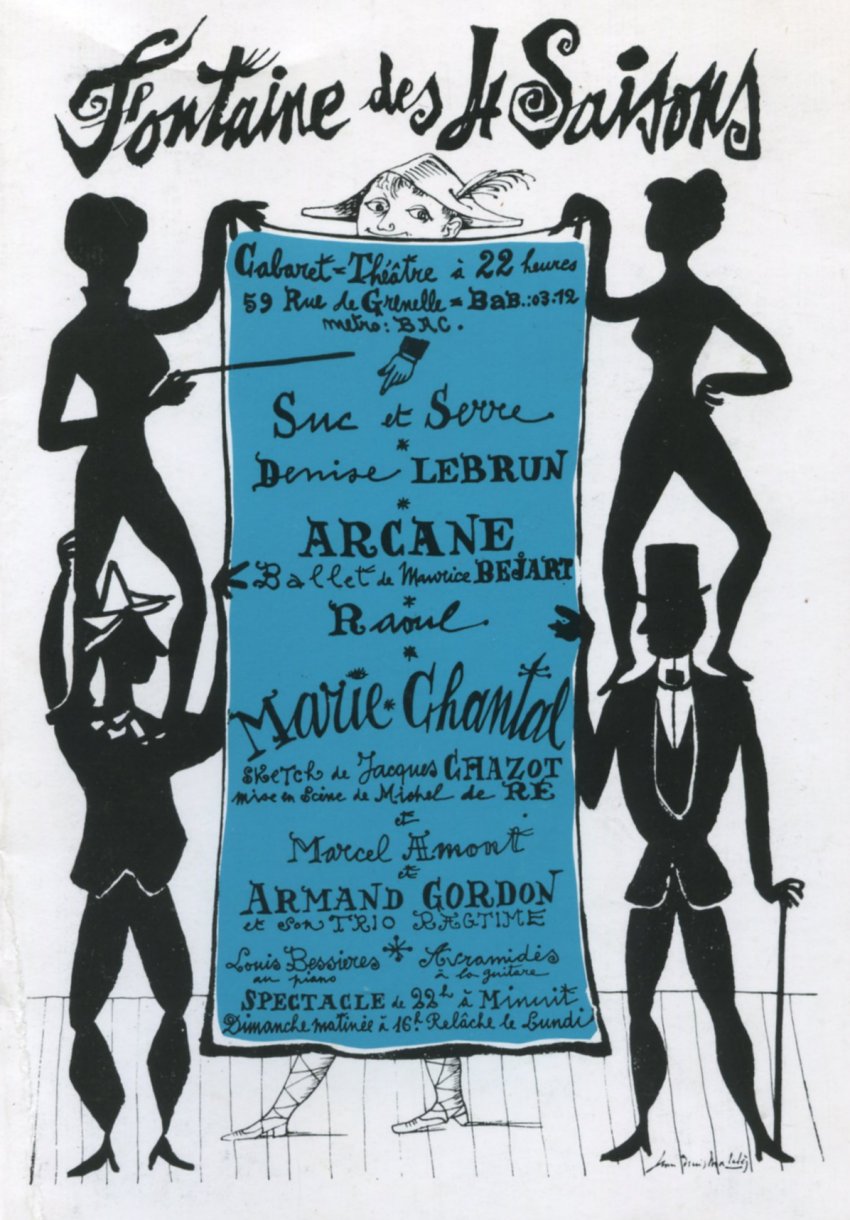 Fontaine des 4 Saisons
Cabaret-Théâtre à 22 heures
59 Rue de Grenelle = BaB.:03.12
metro: BAC.
Suc et Serre
Denise LEBRUN
ARCANE
Ballet de Maurice BEJART
Raoul
Marie-Chantal
Sketch de Jacques CHAZOT
mise en Scène de Michel de RÉ
et
Marcel Amont
et
ARMAND GORDON
et son TRIO RAGTIME
Louis Bessieres
au piano
Avramidès
à la guitare
SPECTACLE de 22h à Minuit
Dimanche matinée à 16h. Relâche le Lundi